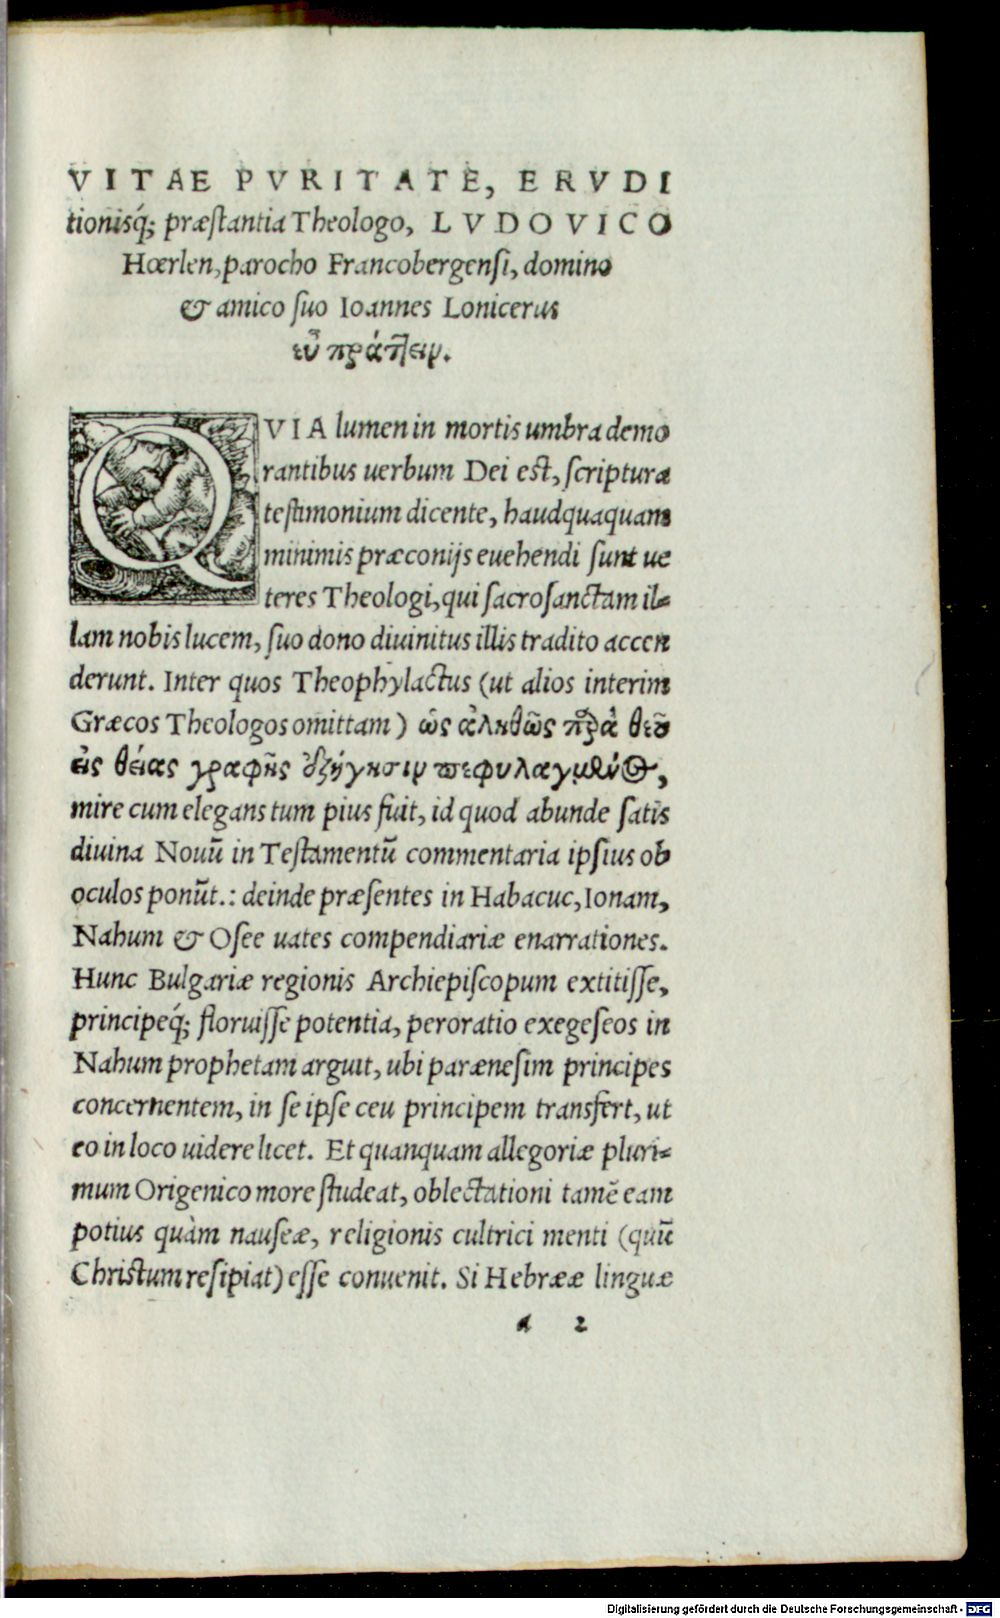 VITAE PVRITATE, ERVDI
tionisq́; præstantia Theologo, LVDOVICO
Hœrlen, parocho Francobergensi, domino
& amico suo Ioannes Lonicerus
εὖ πράτ͂ειν.
QVIA lumen in mortis umbra demo
rantibus uerbum Dei est, scripturæ
testimonium dicente, haudquaquam
minimis præconijs euehendi sunt ue
teres Theologi, qui sacrosanctam il-
lam nobis lucem, suo dono diuinitus illis tradito accen
derunt. Inter quos Theophylactus (ut alios interim
Græcos Theologos omittam) ὡς ἀληθῶς παρὰ θεοῦ
εἰς θείας γραφῆς ἐξήγησιν πεφυλαγμένος,
mire cum elegans tum pius fuit, id quod abunde satis
diuina Nouū in Testamentū commentaria ipsius ob
oculos ponūt.: deinde præsentes in Habacuc, Ionam,
Nahum & Osee uates compendiariæ enarrationes.
Hunc Bulgariæ regionis Archiepiscopum extitisse,
principeq́; floruisse potentia, peroratio exegeseos in
Nahum prophetam arguit, ubi parænesim principes
concernentem, in se ipse ceu principem transfert, ut
eo in loco uidere licet. Et quanquam allegoriæ pluri-
mum Origenico more studeat, oblectationi tamē eam
potius quàm nauseæ, religionis cultrici menti (quū
Christum resipiat) esse conuenit. Si Hebrææ linguæ
a 2
Digitalisierung gefördert durch die Deutsche Forschungsgemeinschaft - DFG